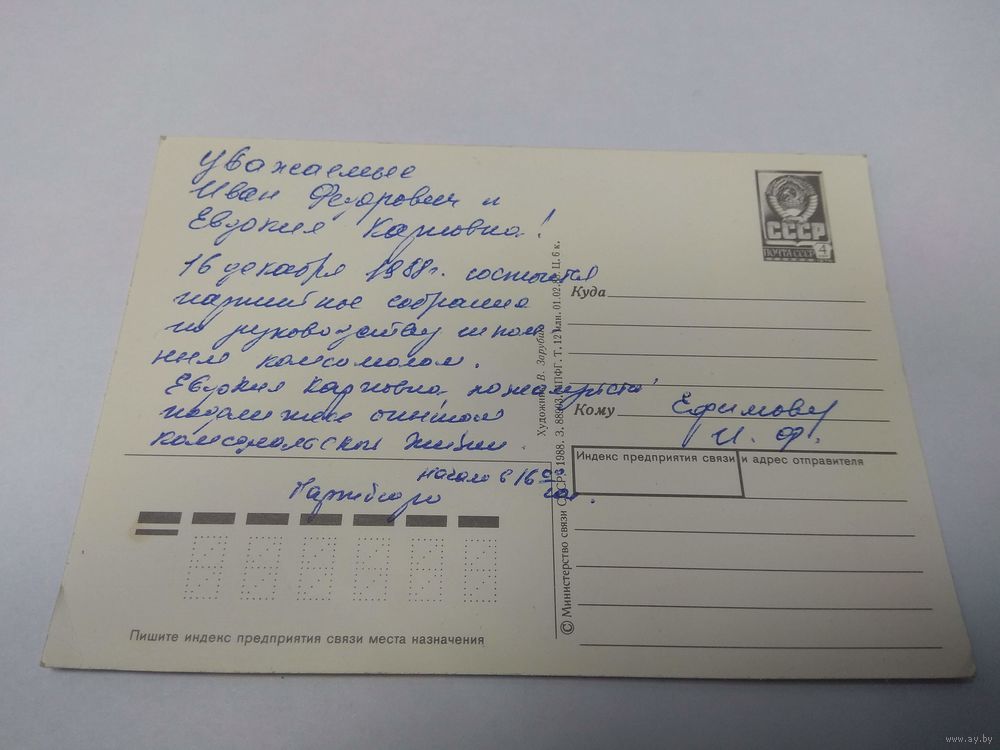 Уважаемые
Иван Федорович и
Евдокия Карповна!
16 декабря 1988г. состоится
партийное собрание
по руководству школь
ным комсомолом.
Евдокия Карповна пожалуйста
комсомольской жизни.
начало в 16 00
Партбюро
Пишите индекс предприятия связи места назначения
© Министерство связи СССР. 1988. З. 88003. МПФГ. Т. 12 млн. 01.02.88. Ц. 6 к.
Художник В. Зарубин
СССР
ПОЧТА СССР
4
Куда
Кому Ефимову
И. Ф.
Индекс предприятия связи и адрес отправителя
www.ay.by